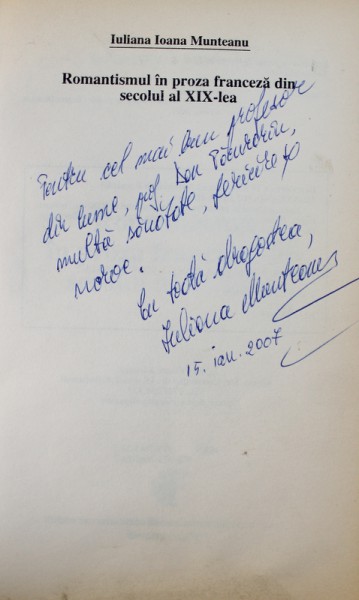 Iuliana Ioana Munteanu
Romantismul în proza franceză din
secolul al XIX-lea
Pentru cel mai bun profesor
din lume, prof. Dan
multă sănătate, fericire și
noroc.
Cu toată dragostea,
Iuliana Munteanu
15. ian. 2007